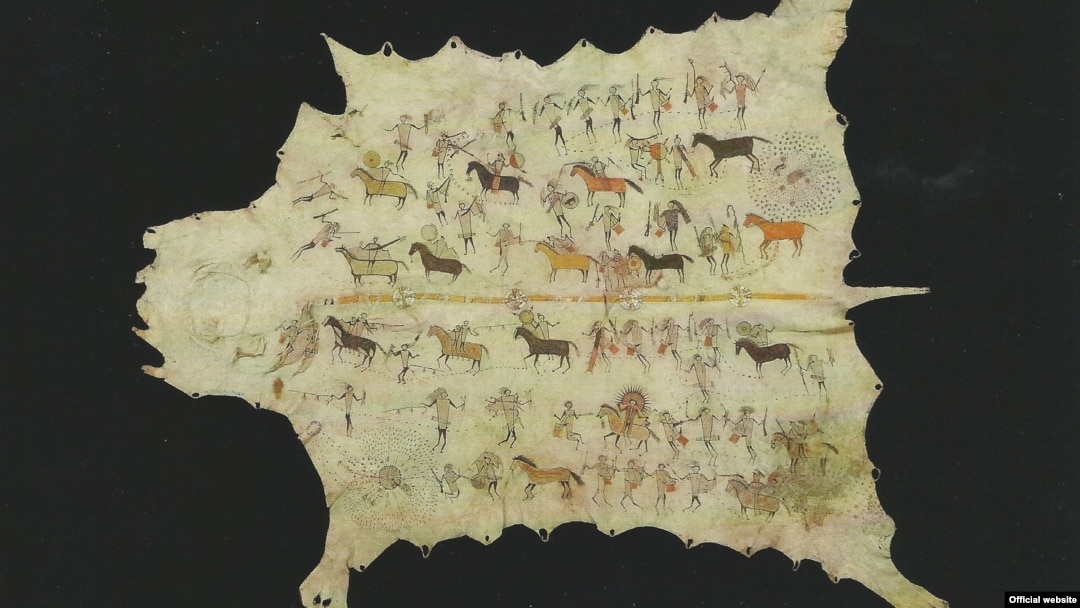 Official website